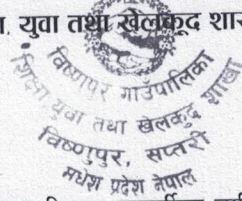 , युवा तथा खेलकूद शा
विष्णुपुर गाउँपालिका
शिक्षा, युवा तथा खेलकुद शाखा
विष्णुपुर, सप्तरी
मधेश प्रदेश नेपाल